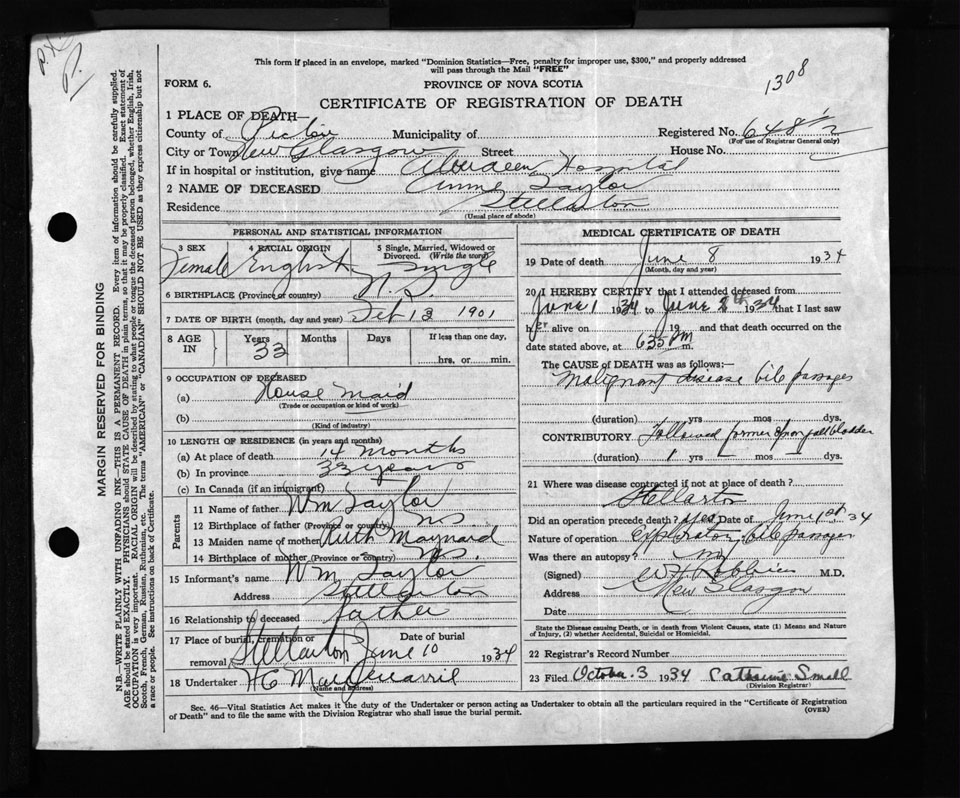 P.X.
P.
This form if placed in an envelope, marked "Dominion Statistics—Free, penalty for improper use, $300," and properly addressed
will pass through the Mail "FREE"
1308
FORM 6.
PROVINCE OF NOVA SCOTIA
CERTIFICATE OF REGISTRATION OF DEATH
1 PLACE OF DEATH—
County of Pictou Municipality of Registered No. 648½
(For use of Registrar General only)
City or Town New Glasgow Street House No.
If in hospital or institution, give name Aberdeen Hospital
2 NAME OF DECEASED Annie Taylor
Residence Stellarton
(Usual place of abode)
PERSONAL AND STATISTICAL INFORMATION
3 SEX 4 RACIAL ORIGIN 5 Single, Married, Widowed or Divorced. (Write the word)
Female English Single
6 BIRTHPLACE (Province or country) N.S.
7 DATE OF BIRTH (month, day and year) Feb 13 1901
8 AGE IN Years Months Days If less than one day,
33 hrs. or min.
9 OCCUPATION OF DECEASED
(a) House Maid
(Trade or occupation or kind of work)
(b)
(Kind of industry)
10 LENGTH OF RESIDENCE (in years and months)
(a) At place of death 14 months
(b) In province 33 years
(c) In Canada (if an immigrant)
Parents
11 Name of father Wm Taylor
12 Birthplace of father (Province or country) NS
13 Maiden name of mother Ruth Maynard
14 Birthplace of mother (Province or country) N.S.
15 Informant's name Wm Taylor
Address Stellarton
16 Relationship to deceased father
17 Place of burial, cremation or removal Date of burial
Stellarton June 10 1934
18 Undertaker H C
(Name and address)
MEDICAL CERTIFICATE OF DEATH
19 Date of death June 8 1934
(Month, day and year)
20 I HEREBY CERTIFY that I attended deceased from
June 1 1934 to June 8th 1934 that I last saw
her alive on 19 and that death occurred on
date stated above, at 635 PM m.
The CAUSE OF DEATH was as follows:—
Malignant disease bile passages
(duration) yrs mos dys.
CONTRIBUTORY Followed former opon gall bladder
(duration) 1 yrs — mos — dys.
21 Where was disease contracted if not at place of death?
Stellarton
Did an operation precede death? Yes Date of June 1st 34
Nature of operation exploratory bile passages
Was there an autopsy?
(Signed) M.D.
Address New Glasgow
Date
State the Disease causing Death, or in death from Violent Causes, state (1) Means and Nature
of Injury, (2) whether Accidental, Suicidal or Homicidal.
22 Registrar's Record Number
23 Filed October 3 1934 Catherine Small
(Division Registrar)
Sec. 46—Vital Statistics Act makes it the duty of the Undertaker or person acting as Undertaker to obtain all the particulars required in the "Certificate of Registration
of Death" and to file the same with the Division Registrar who shall issue the burial permit.
(OVER)
MARGIN RESERVED FOR BINDING
N.B.—WRITE PLAINLY WITH UNFADING INK—THIS IS A PERMANENT RECORD. Every item of information should be carefully supplied.
AGE should be stated EXACTLY. PHYSICIANS should STATE CAUSE OF DEATH in plain terms, so that it may be properly classified. Exact statement of
OCCUPATION is very important. RACIAL ORIGIN will be described by stating to what people or tongue the deceased person belonged, whether English, Irish,
Scotch, French, German, Russian, Ruthenian, etc. The terms "AMERICAN" or "CANADIAN" SHOULD NOT BE USED as they express citizenship but not
a race or people. See instructions on back of Certificate.